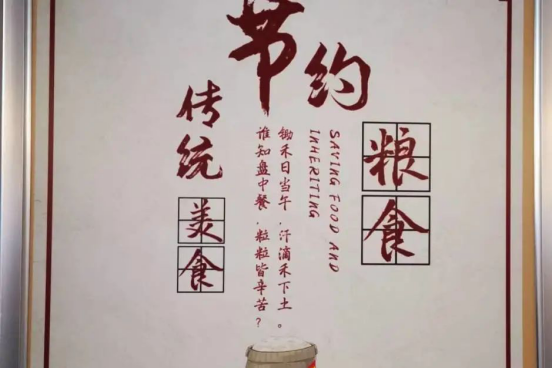 节约
粮食
SAVING FOOD AND
INHERITING
锄禾日当午,汗滴禾下土。
谁知盘中餐,粒粒皆辛苦?
传统
美食